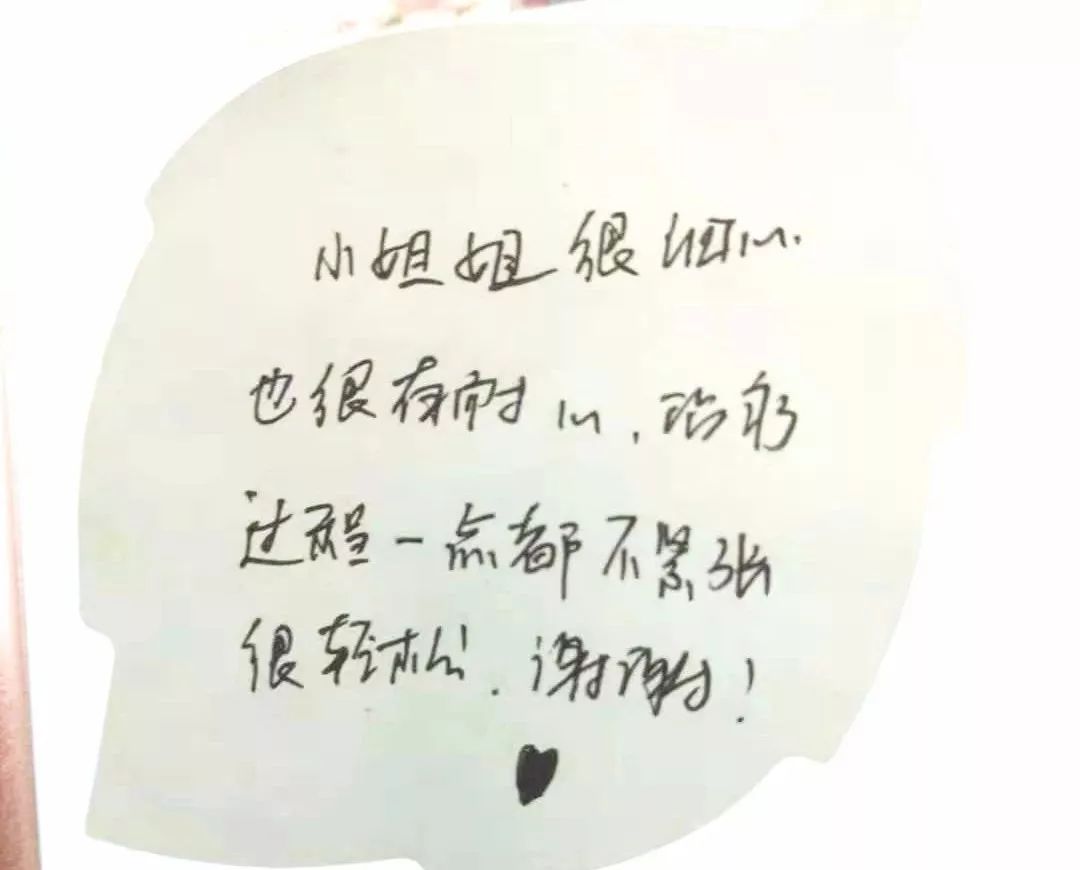 小姐姐很细心.
也很有耐心,治疗
过程一点都不紧张
很轻松.谢谢!